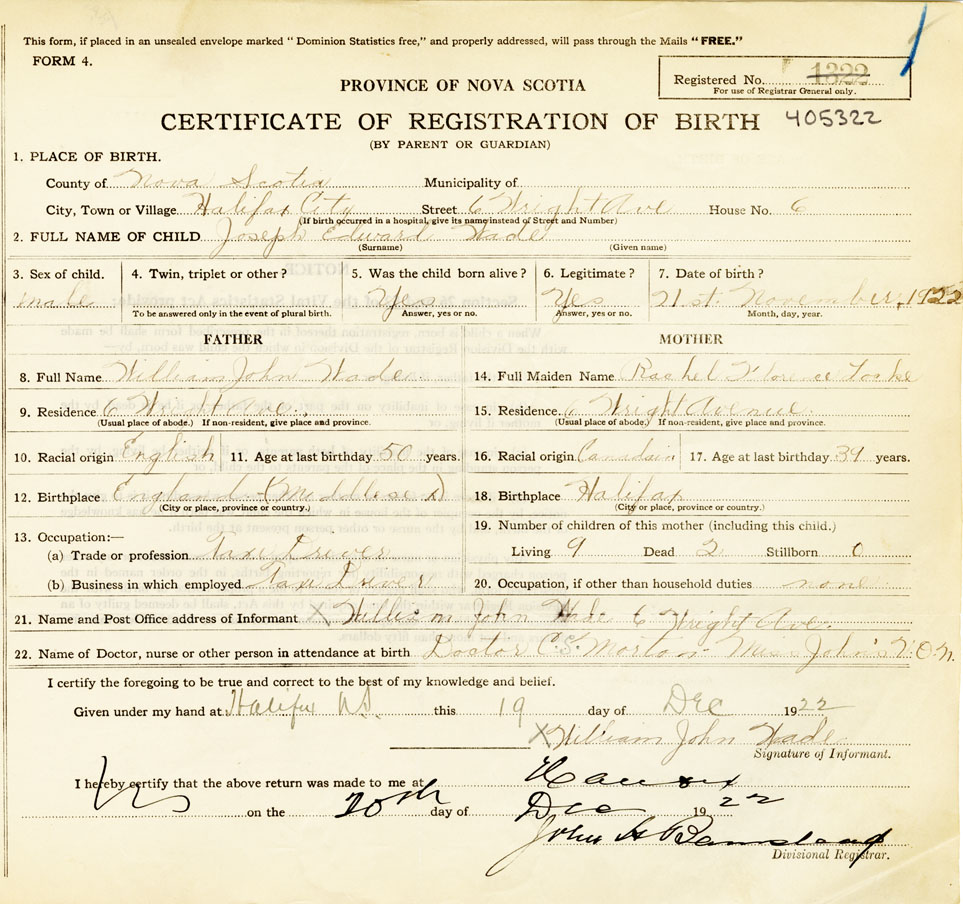 This form, if placed in an unsealed envelope marked "Dominion Statistics free," and properly addressed, will pass through the Mails "FREE."
FORM 4.
PROVINCE OF NOVA SCOTIA
Registered No. 1322
For use of Registrar General only.
CERTIFICATE OF REGISTRATION OF BIRTH 405322
(BY PARENT OR GUARDIAN)
1. PLACE OF BIRTH.
County of Nova Scotia Municipality of
City, Town or Village Halifax City Street 6 Wright Ave House No. 6
(If birth occurred in a hospital, give its name instead of Street and Number)
2. FULL NAME OF CHILD Joseph Edward Wade
(Surname) (Given name)
3. Sex of child. 4. Twin, triplet or other? 5. Was the child born alive? 6. Legitimate? 7. Date of birth?
male Yes Yes 21st. November, 1922
To be answered only in the event of plural birth. Answer, yes or no. Answer, yes or no. Month, day, year.
FATHER MOTHER
8. Full Name William John Wade 14. Full Maiden Name Rachel Florence
9. Residence 6 Wright Ave., 15. Residence 6 Wright Avenue.
(Usual place of abode.) If non-resident, give place and province. (Usual place of abode.) If non-resident, give place and province.
10. Racial origin English 11. Age at last birthday 50 years. 16. Racial origin Canadain 17. Age at last birthday 39 years.
12. Birthplace England-(Middlesex) 18. Birthplace Halifax
(City or place, province or country.) (City or place, province or country.)
13. Occupation:— 19. Number of children of this mother (including this child.)
(a) Trade or profession Taxi Driver Living 9 Dead 2 Stillborn 0
(b) Business in which employed Taxi Driver 20. Occupation, if other than household duties none
21. Name and Post Office address of Informant X William John Wade 6 Wright Ave.
22. Name of Doctor, nurse or other person in attendance at birth Doctor C.S. Morton Miss John's V.O.N.
I certify the foregoing to be true and correct to the best of my knowledge and belief.
Given under my hand at Halifax N.S. this 19 day of Dec 1922
X William John Wade
Signature of Informant.
I hereby certify that the above return was made to me at Halifax
NS on the 20th day of Dec 1922
John A
Divisional Registrar.